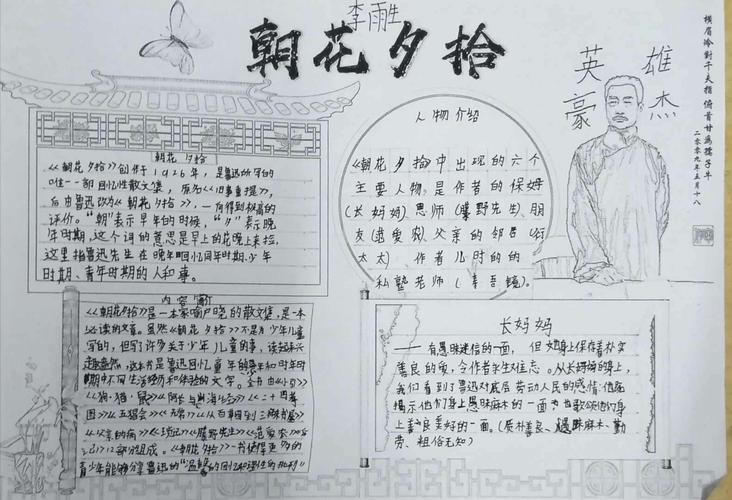 李雨胜
朝花夕拾
英雄
豪杰
横眉冷对千夫指 俯首甘为孺子牛
二〇〇九年五月十八
朝花 夕拾
《朝花 夕拾》创作于1926年，是鲁迅所写的
唯一一部回忆性散文集，原名《旧事重提》，
后由鲁迅改为《朝花夕拾》，一向得到极高的
评价。"朝"表示早年的时候，"夕"表示晚
年时期，这个词的意思是早上的花晚上来捡，
这里指鲁迅先生在晚年回忆童年时期、少年
时期、青年时期的人和事。
人物介绍
《朝花夕拾》中出现的六个
主要人物，是作者的保姆
(长妈妈)恩师(藤野先生)、朋
友(范爱农)、父亲的邻居(衍
太太)、作者儿时的的
私塾老师(寿吾镜)。
内容
《朝花夕拾》是一本家喻户晓的散文集，是一本
必读的文章。虽然《朝花夕拾》不是为少年儿童
写的，但写了许多关于少年儿童的事，读起来
《狗·猫·鼠》《阿长与山海经》《二十四孝
图》《五猖会》《无常》《从百草园到三味书屋》
《父亲的病》《琐记》《藤野先生》《范爱农》
12部分组成。《朝花夕拾》
青少年能够分享鲁迅的
长妈妈
——有愚昧迷信的一面，但她身上保存着朴实
善良的爱，令作者永生难忘。从长妈妈的身上，
我们看到了鲁迅对底层劳动人民的感情：他既
揭示他们身上愚昧麻木的一面，也歌颂他们身
上善良美好的一面。(质朴善良、愚昧麻木、勤
劳、粗俗无知)